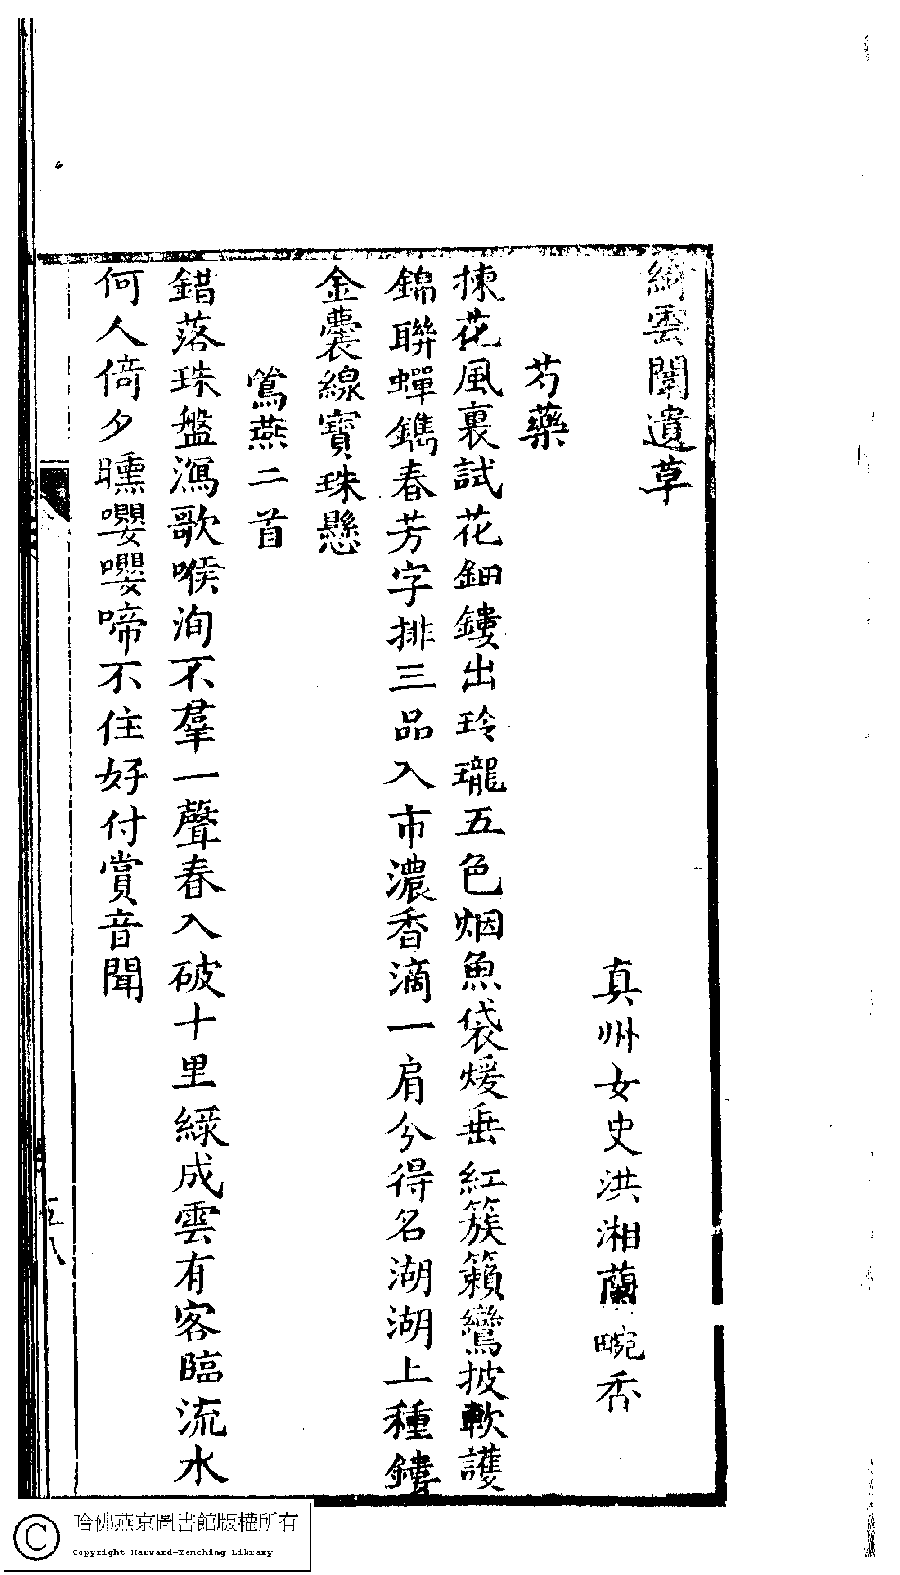 綺雲閣遺草
真州女史洪湘蘭畹香
芍藥
揀花風裏試花鈿鏤出玲瓏五色烟魚袋煖垂紅簇籟鸞披軟護
錦聯蟬鐫春芳字排三品入市濃香滴一肩分得名湖湖上種鏤
金囊線寶珠懸
鶯燕二首
錯落珠盤瀉歌喉洵不羣一聲春入破十里綠成雲有客臨流水
何人倚夕曛嚶嚶啼不住好付賞音聞
哈佛燕京圖書館版權所有
Copyright Harvard-Yenching Library